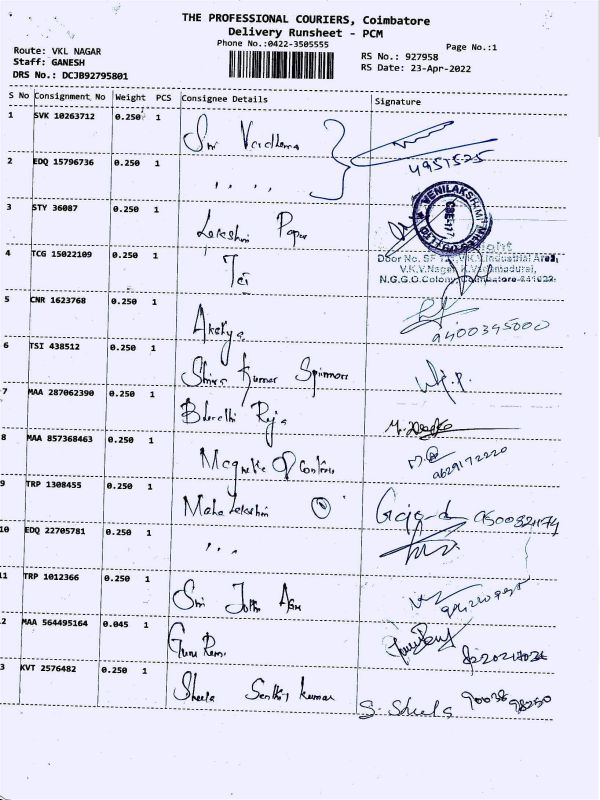 THE PROFESSIONAL COURIERS, Coimbatore
Delivery Runsheet - PCM
Phone No.:0422-3505555
Page No.:1
Route: VKL NAGAR
RS No.: 927958
Staff: GANESH
RS Date: 23-Apr-2022
DRS No.: DCJB92795801
S No Consignment No Weight PCS Consignee Details Signature
1 SVK 10263712 0.250 1 Sri Vardhema
4951525
2 EDQ 15796736 0.250 1 , , , ,
3 STY 36087 0.250 1 Lakshmi Paper
VENILAKSHMI
CBE-17
4 TCG 15022109 0.250 1 Tei
Door No. SF V.K.V. Industrial Area,
V.K.V.Nagar, K.Vadamadurai,
N.G.G.O.Colony, Coimbatore-641022.
5 CNR 1623768 0.250 1 Akshya
9400345000
6 TSI 438512 0.250 1 Shiva Kumar Spinners
7 MAA 287062390 0.250 1 Bharathi Raja
8 MAA 857368463 0.250 1 Magneto Controls
9629172220
9 TRP 1308455 0.250 1 Maha Lakshmi
10 EDQ 22705781 0.250 1 , , ,
11 TRP 1012366 0.250 1 Sri Jothi
2 MAA 564495164 0.045 1 Guru Ram.
3 KVT 2576482 0.250 1 Sheela Senthil kumar
S. Sheela 90038 98250